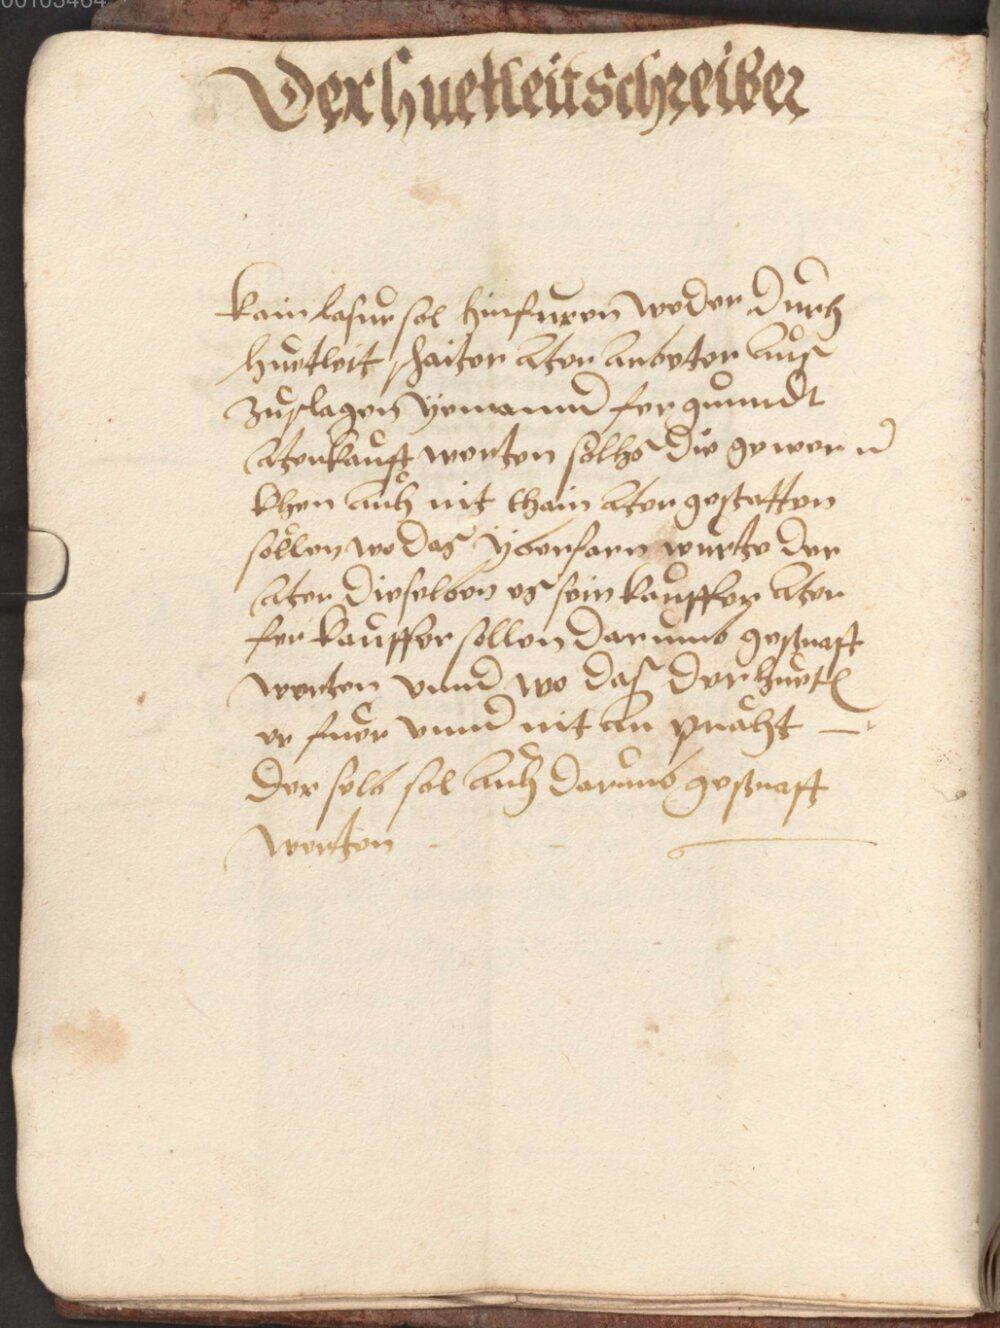 00103464
Der huetleit schreiber
kain lasur sol hinfuren weder durch
huetleit schaiter ater arbeter aus
zuslagen yemannd fergunndt
aterkauft werten solhs die gewer n
khen auch nit thain ater gestatten
sollen wo das yberfarn wurte der
ater dieselben es sein kauffer ater
fer kauffer sollen darumb gestraft
werten vnnd wo das der huetl
er fuer vnnd nit an praht —
der selb sol auch darumb gestraft
werten - -